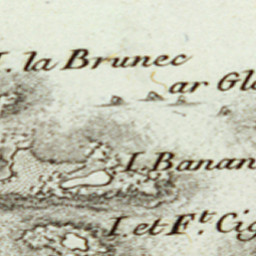 I. la Brunec
ar Glo
I. Banan
I. et Ft. Cig